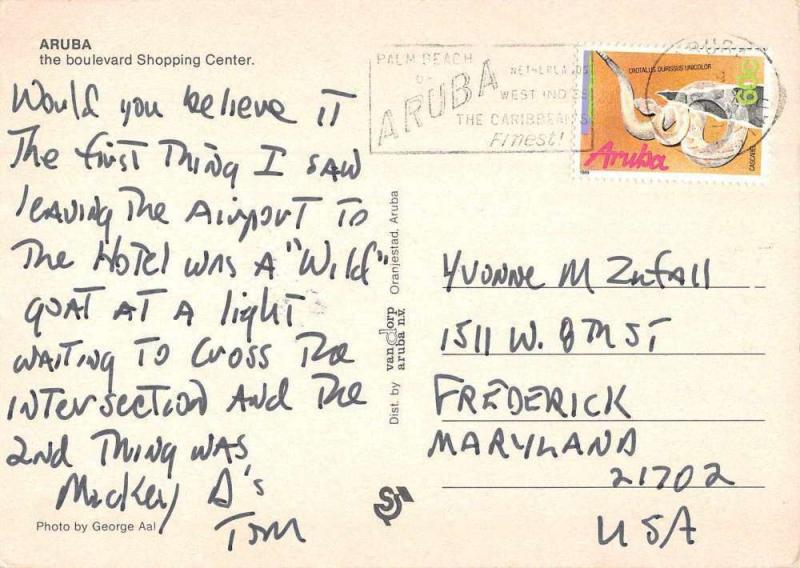 ARUBA
the boulevard Shopping Center.
Would you believe IT
The first Thing I SAW
leaving The Airport To
The Hotel was A "Wild"
goat AT A light
WAITING TO Cross The
INTERSECTION AND The
2nd Thing WAS
Mackey D's
Tom
Photo by George Aal
PALM BEACH
ARUBA
NETHERLANDS
WEST INDIES
THE CARIBBEAN'S
Finest!
CROTALUS DURISSUS UNICOLOR
60c
CASCABEL
Aruba
Dist. by van dorp aruba n.v. Oranjestad, Aruba
Yvonne M Zufall
1511 W. 8TH ST
FREDERICK
MARYLAND
21702
USA